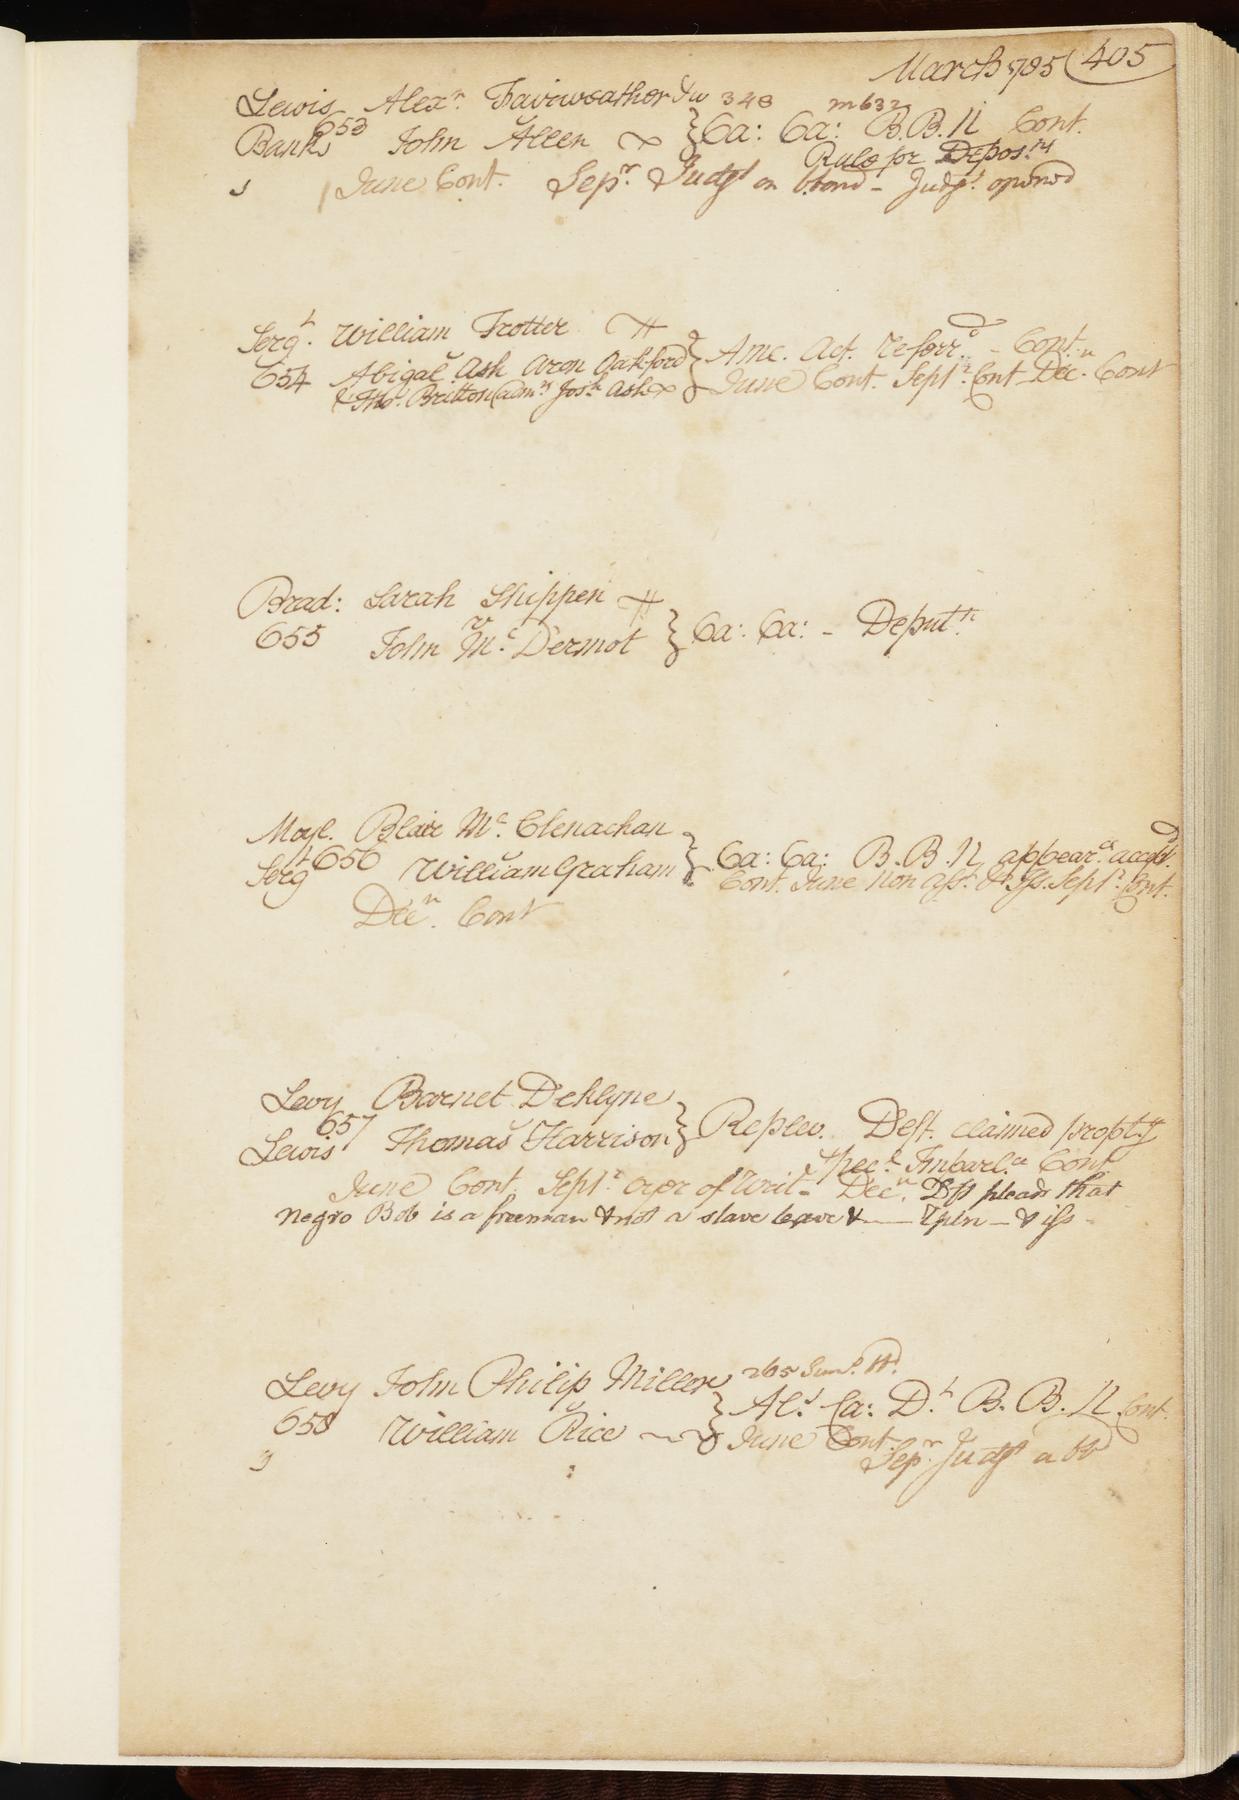 March 1785 (405
Lewis Alexr. Fairweather Iw 348 m632
Banks 653 John Allen } Ca: Ca: B.B.N Cont.
Rule for Depos.ns
June Cont. Sepr. Judgt on bond - Judgt. opened
Sergt. William Trotter } Amc. Act. referrd. - Cont.
654 v Abigal Ash Aron Oakford
& Tho. Britton admrs Josh. Ash } June Cont. Septr. Cont Decn. Cont
Brad: Sarah Shippen
655 v John Mc. Dermot } Ca: Ca: - Deputn.
Moyl. Blair Mc. Clenachan
Sergt 656 v William Graham } Ca: Ca: B.B.N appearce. accepd.
Cont. June non asst. & Iss. Septr. Cont.
Decn. Cont
Levy Barnet Deklyne
Lewis 657 v Thomas Harrison } Replev. Deft. claimed propty
Specl. Imparlce Cont
June Cont. Septr. oyer of Writ - Decn. Dft pleads that
negro Bob is a freeman & not a slave leave & — rpln — & iss -
Levy John Philip Miller 265 Sum. Hd.
658 v William Rice } Als. Ca: Dt. B. B. N Cont.
June Cont.
Sepr. Judgt a bd